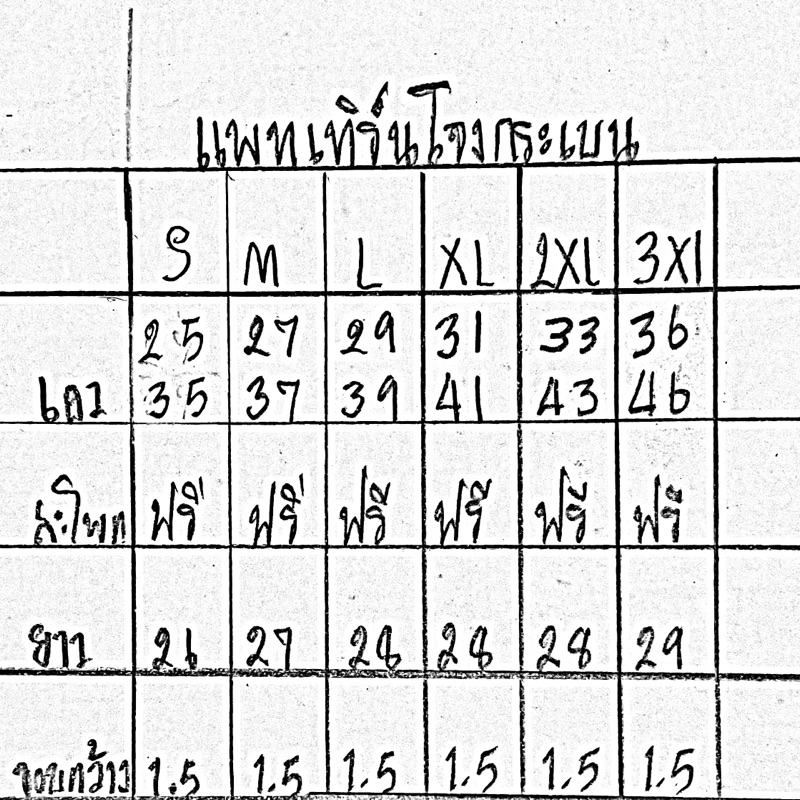 แพทเทิร์นโจงกระเบน
S M L XL 2XL 3XL
25 27 29 31 33 36
เอว 35 37 39 41 43 46
สะโพก ฟรี ฟรี ฟรี ฟรี ฟรี ฟรี
ยาว 26 27 28 28 28 29
ขอบกว้าง 1.5 1.5 1.5 1.5 1.5 1.5